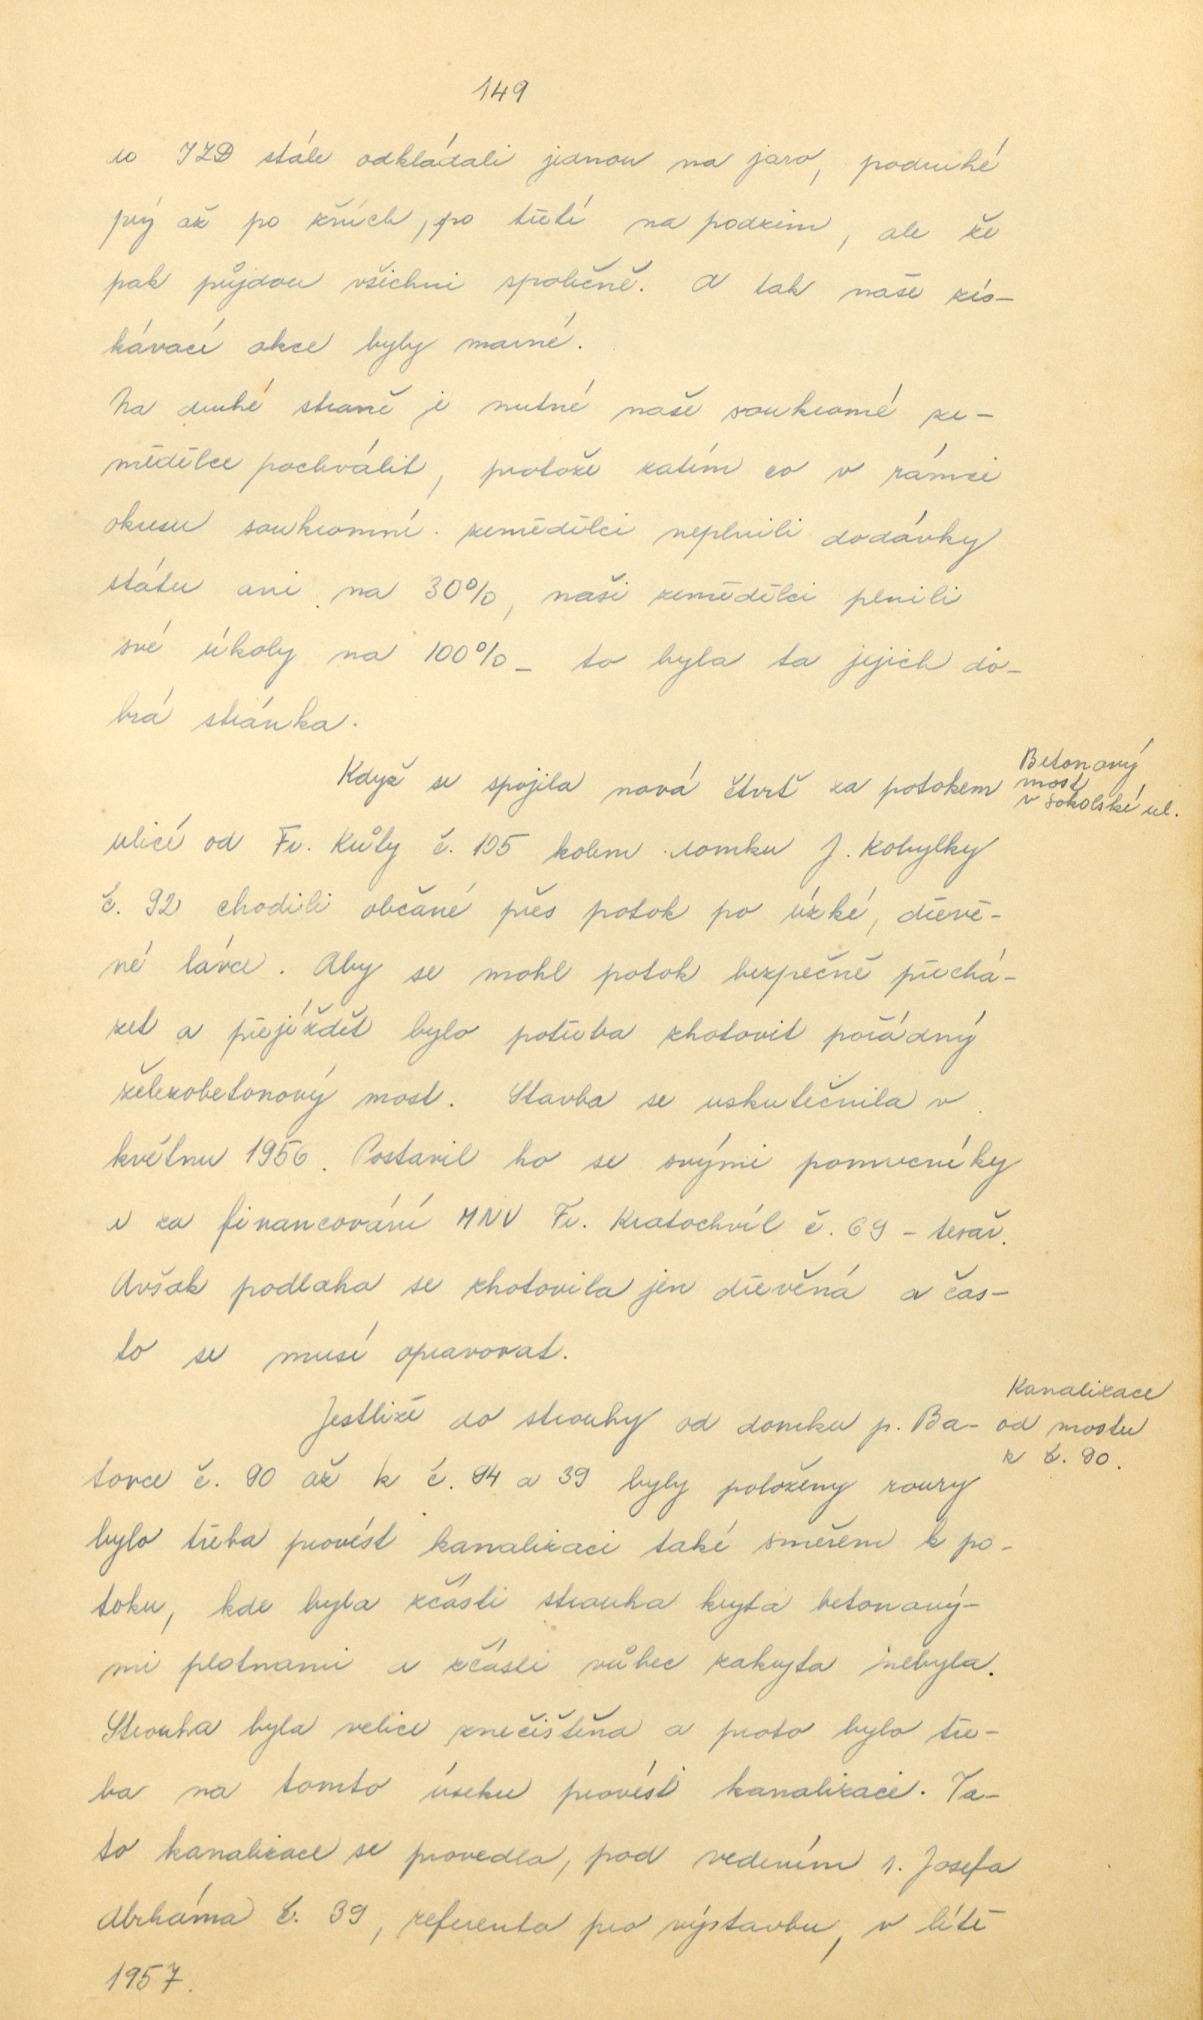 149
do JZD stále odkládali jednou na jaro, podruhé
prý až po žních, po třetí na podzim, ale že
pak půjdou všichni společně. A tak naše zís-
kávací akce byly marné.
Na druhé straně je nutné naše soukromé ze-
mědělce pochválit, protože zatím co v rámci
okresu soukromní zemědělci neplnili dodávky
státu ani na 30%, naši zemědělci plnili
své úkoly na 100% - to byla ta jejich do-
brá stránka.
Když se spojila nová čtvrť za potokem
Betonový
most
v Sokolské ul.
ulicí od Fr. Kůly č. 105 kolem domku J. Kobylky
č. 92 chodili občané přes potok po úzké, dřevě-
né lávce. Aby se mohl potok bezpečně přechá-
zet a přejíždět bylo potřeba zhotovit pořádný
železobetonový most. Stavba se uskutečnila v
květnu 1956. Postavil ho se svými pomocníky
a za financování MNV Fr. Kratochvíl č. 69 - tesař.
Avšak podlaha se zhotovila jen dřevěná a čas-
to se musí opravovat.
Jestliže do strouhy od domku p. Ba-
Kanalizace
od mostu
k č. 90.
tovce č. 90 až k č. 94 a 39 byly položeny roury
bylo třeba provést kanalizaci také směrem k po-
toku, kde byla zčásti strouha krytá betonový-
mi plotnami a zčásti vůbec zakryta nebyla.
Strouha byla velice znečištěna a proto bylo tře-
ba na tomto úseku provésti kanalizaci. Ta-
to kanalizace se provedla, pod vedením s. Josefa
Abrháma č. 39, referenta pro výstavbu, v létě
1957.